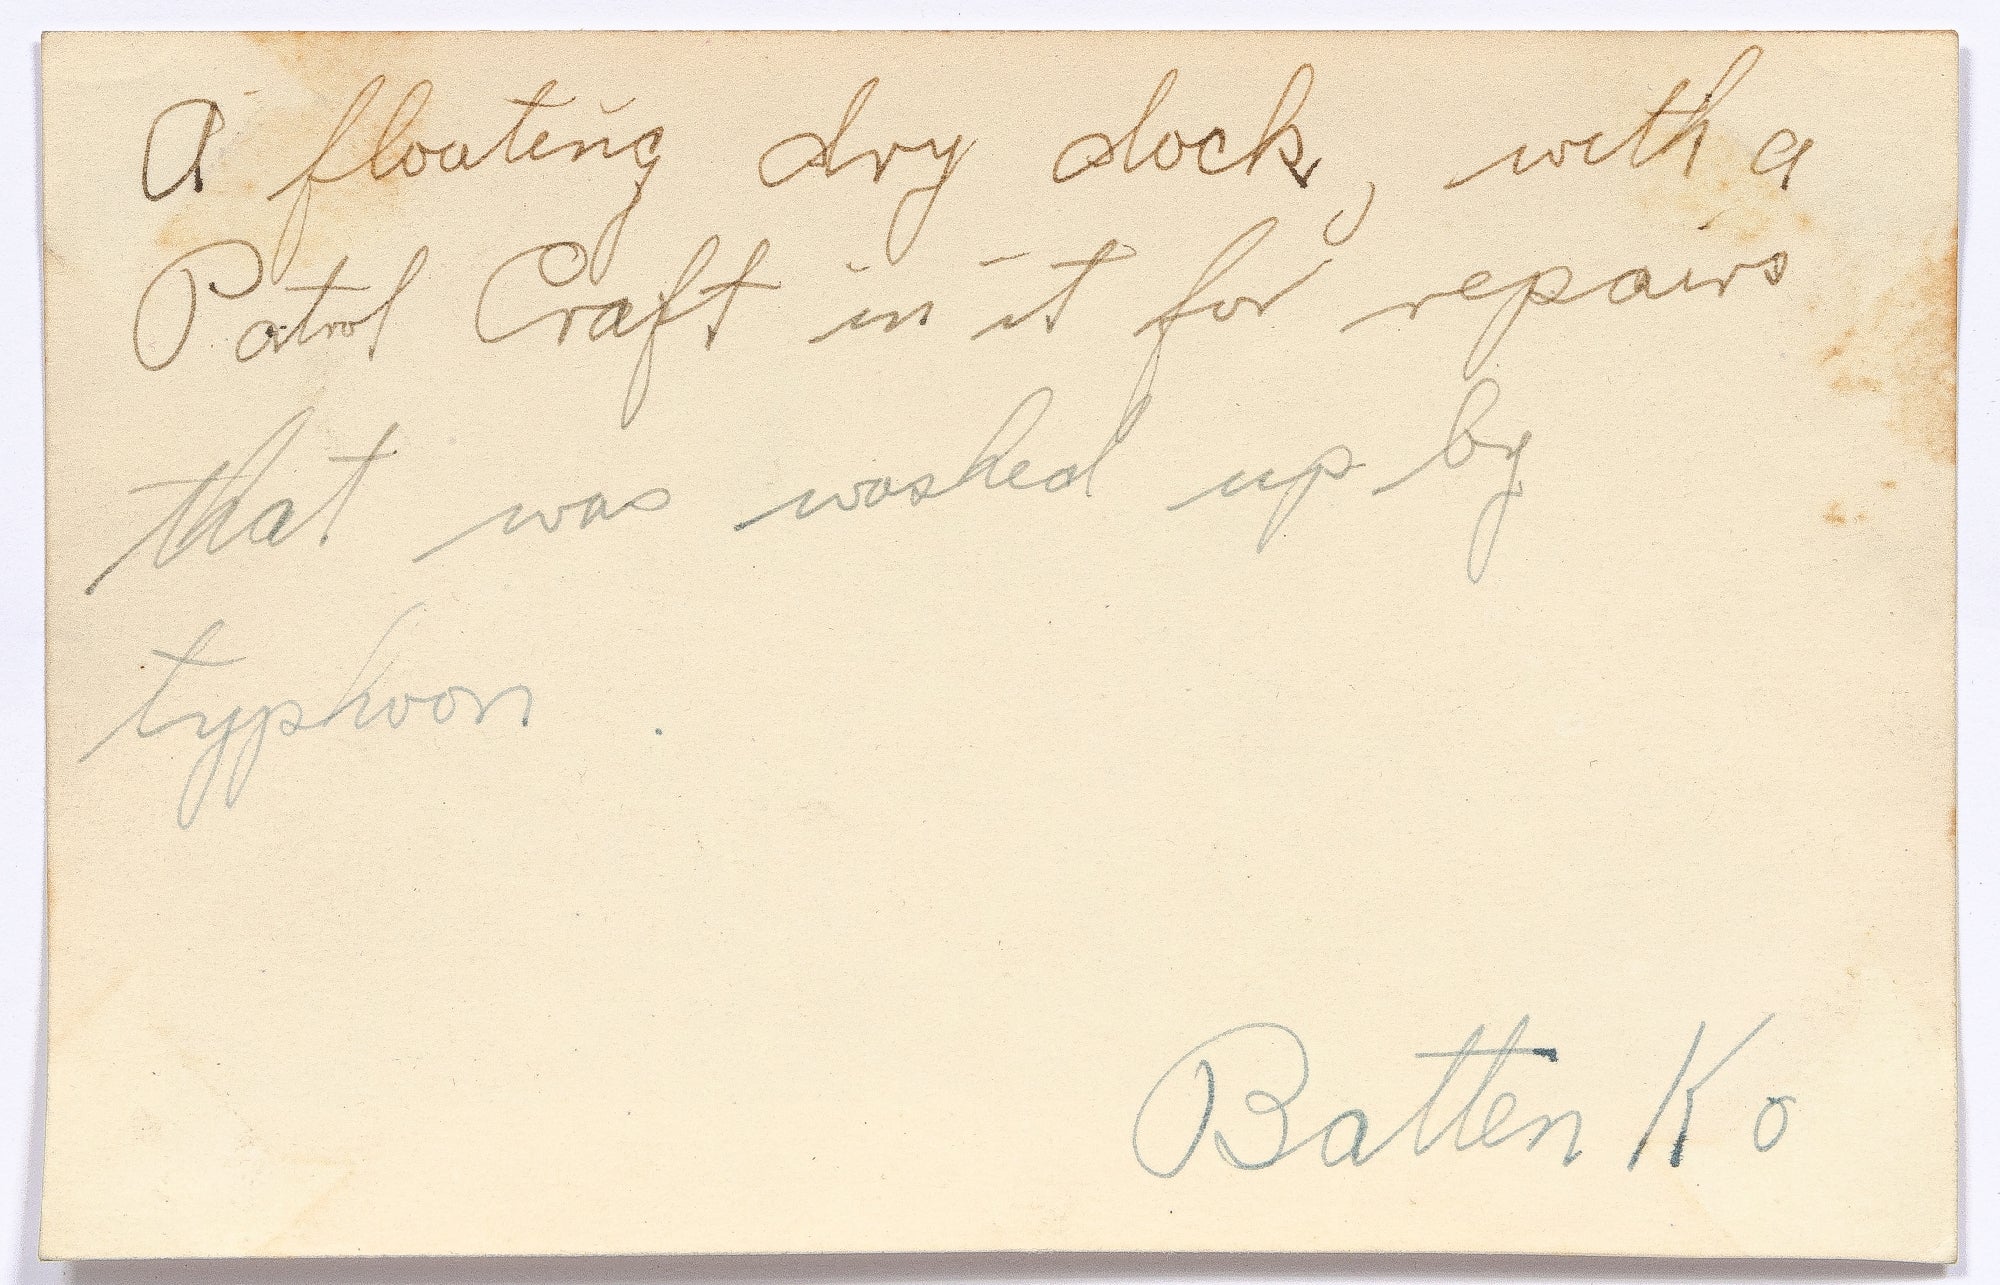 A floating dry dock, with a
Patrol Craft in it for repairs
that was washed up by
typhoon.
Batten Ko